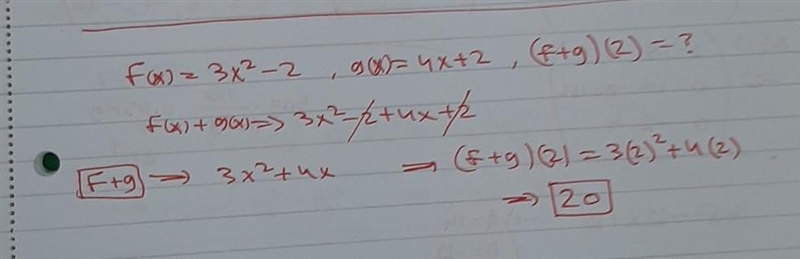 f(x) = 3x² - 2 , g(x) = 4x + 2 , (f+g)(2) = ?
f(x) + g(x) ⇒ 3x² - 2 + 4x + 2
f+g → 3x² + 4x ⇒ (f+g)(2) = 3(2)² + 4(2)
⇒ 20